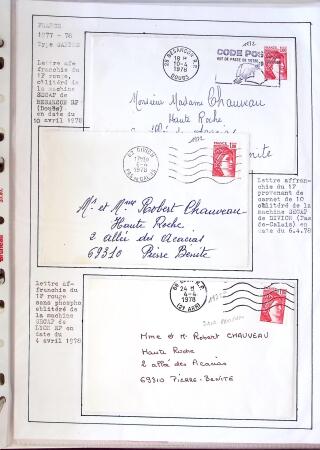 FRANCE
1977 - 78
Type GANDON
Lettre af-
franchie du
1F rouge,
oblitéré de
la machine
SECAP de
BESANCON RP
(Doubs)
en date du
10 avril 1978
25 BESANCON R.P.
18 H
10-4
1978
DOUBS
CODE POSTAL
MOT DE PASSE DE VOTRE
1972
1,00
Monsieur Madame Chauveau
Haute Roche
62 DIVION
6-4
1978
PAS DE CALAIS
1972
1,00
Mr et Mme Robert Chauveau
Haute Roche
2 allée des Acacias
69310 Pierre Benite
Lettre affran-
chie du 1F
provenant de
carnet de 10
oblitéré de la
machine SECAP
de DIVION (Pas
de-Calais) en
date du 6.4.78
Lettre af-
franchie du
1F rouge
sans phospho
oblitéré de
la machine
SECAP de
LYON RP en
date du
4 avril 1978
24 H
4-4
1978
Mme et M. Robert CHAUVEAU
Haute Roche
2 allée des Acacias
69310 PIERRE-BENITE